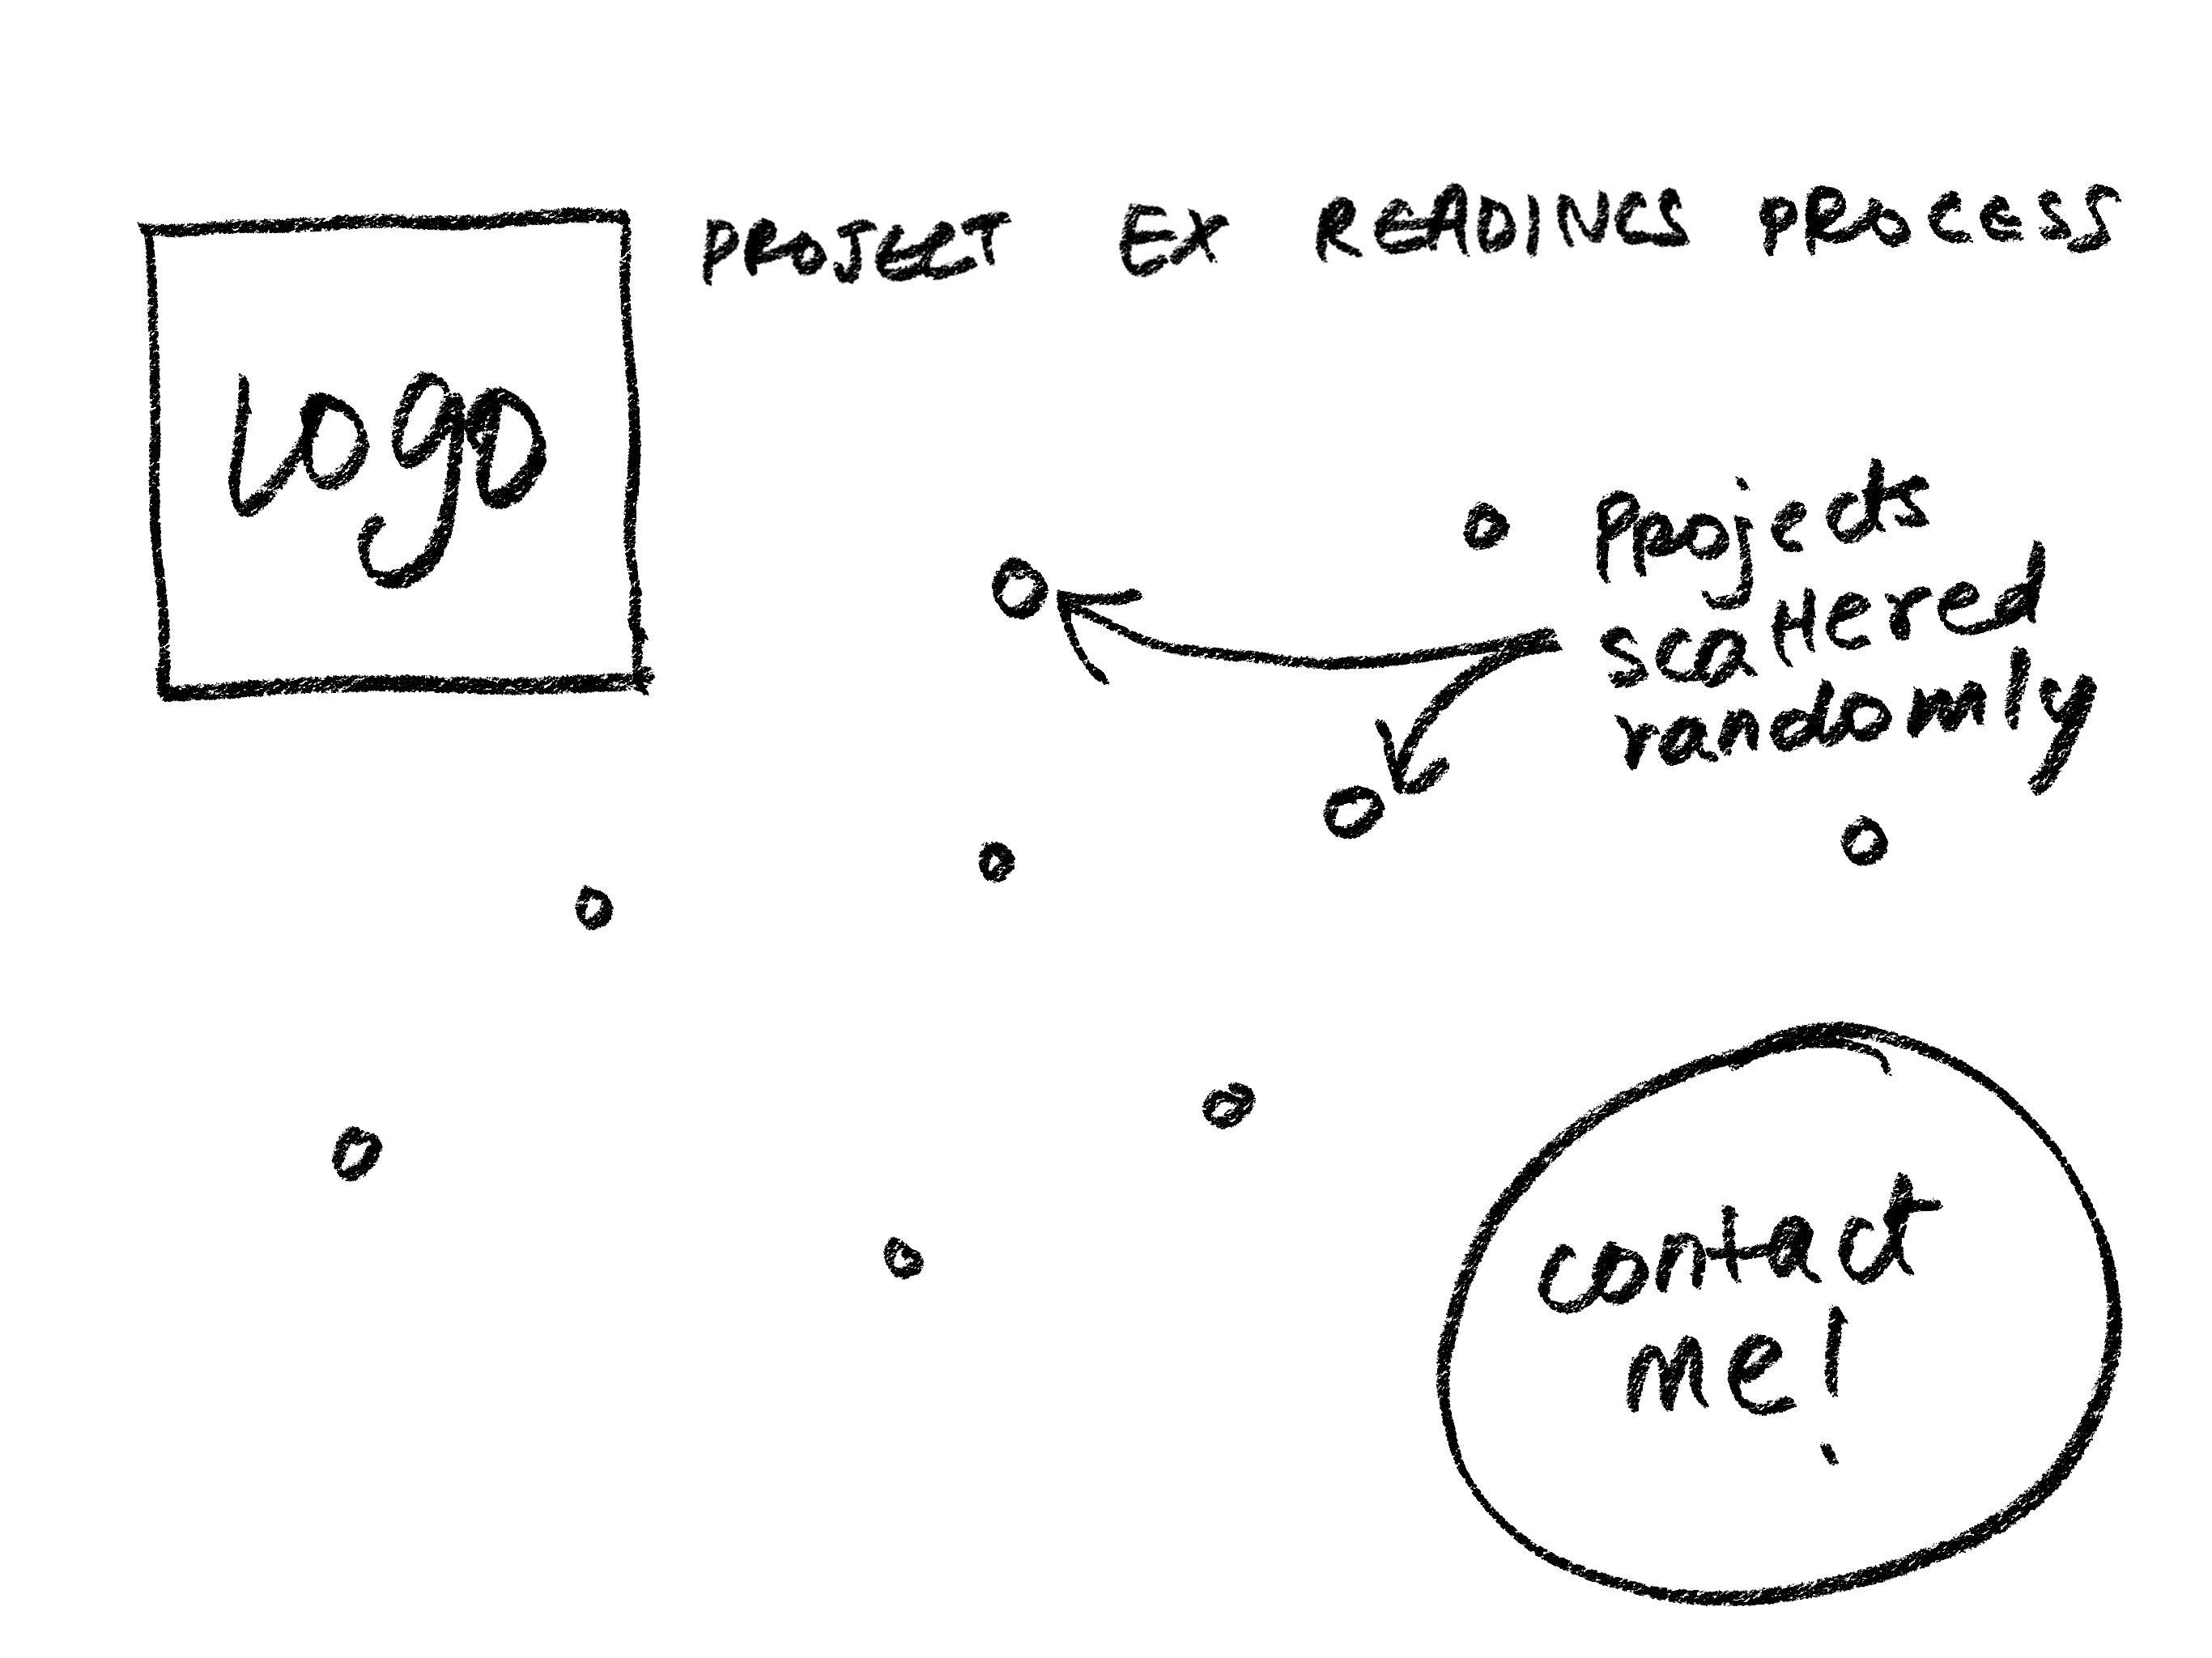 PROJECT EX READINGS PROCESS
Logo
Projects
scattered
randomly
contact
me!